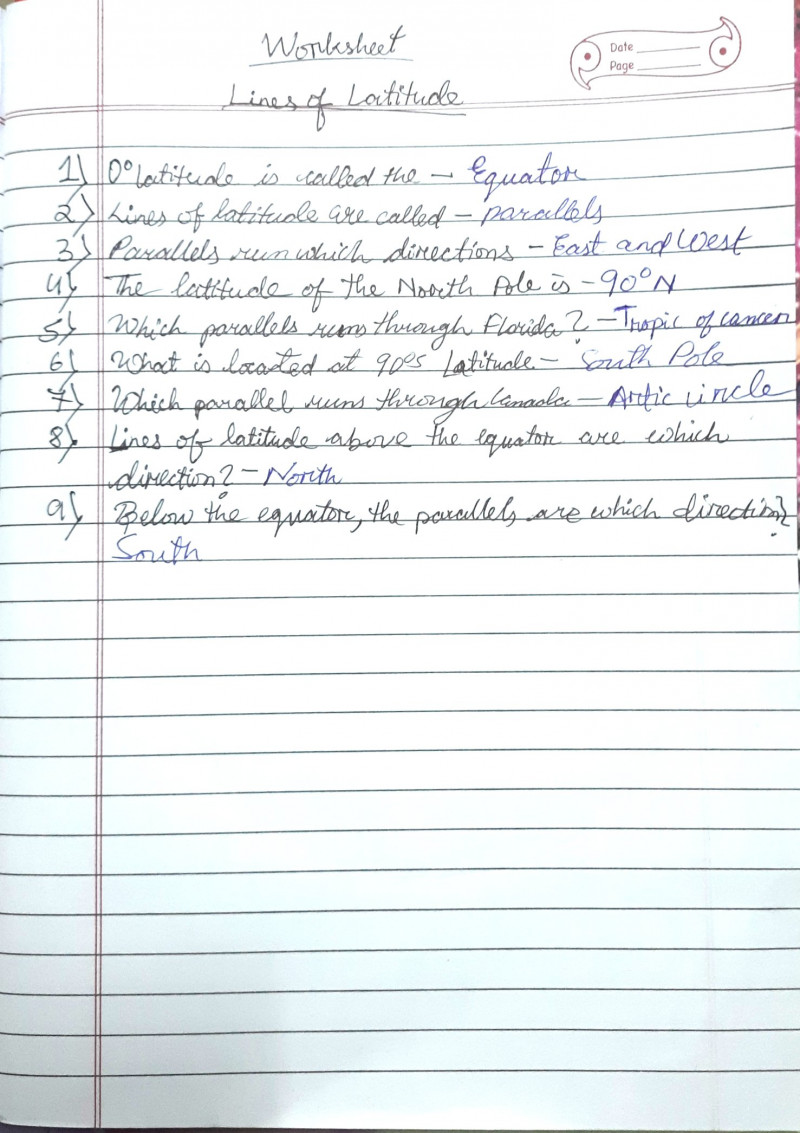 Worksheet
Date
Page
Lines of Latitude
1) 0° latitude is called the - Equator
2) Lines of latitude are called - parallels
3) Parallels run which directions - East and West
4) The latitude of the North Pole is - 90°N
5) Which parallels runs through Florida? - Tropic of cancer
6) What is located at 90°s Latitude - South Pole
7) Which parallel runs through Canada - Artic circle
8) Lines of latitude above the equator are which
direction? - North
9) Below the equator, the parallels are which direction?
South